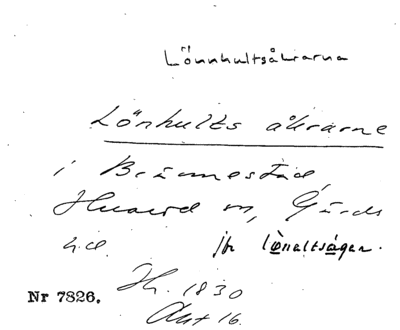 Lönnhultsåkrarna
Lönhults åkrarne
i Brännestad,
m, Gärds
hd. jfr lönaltsågen.
Nr 7826. Sk. 1830
Akt 16.